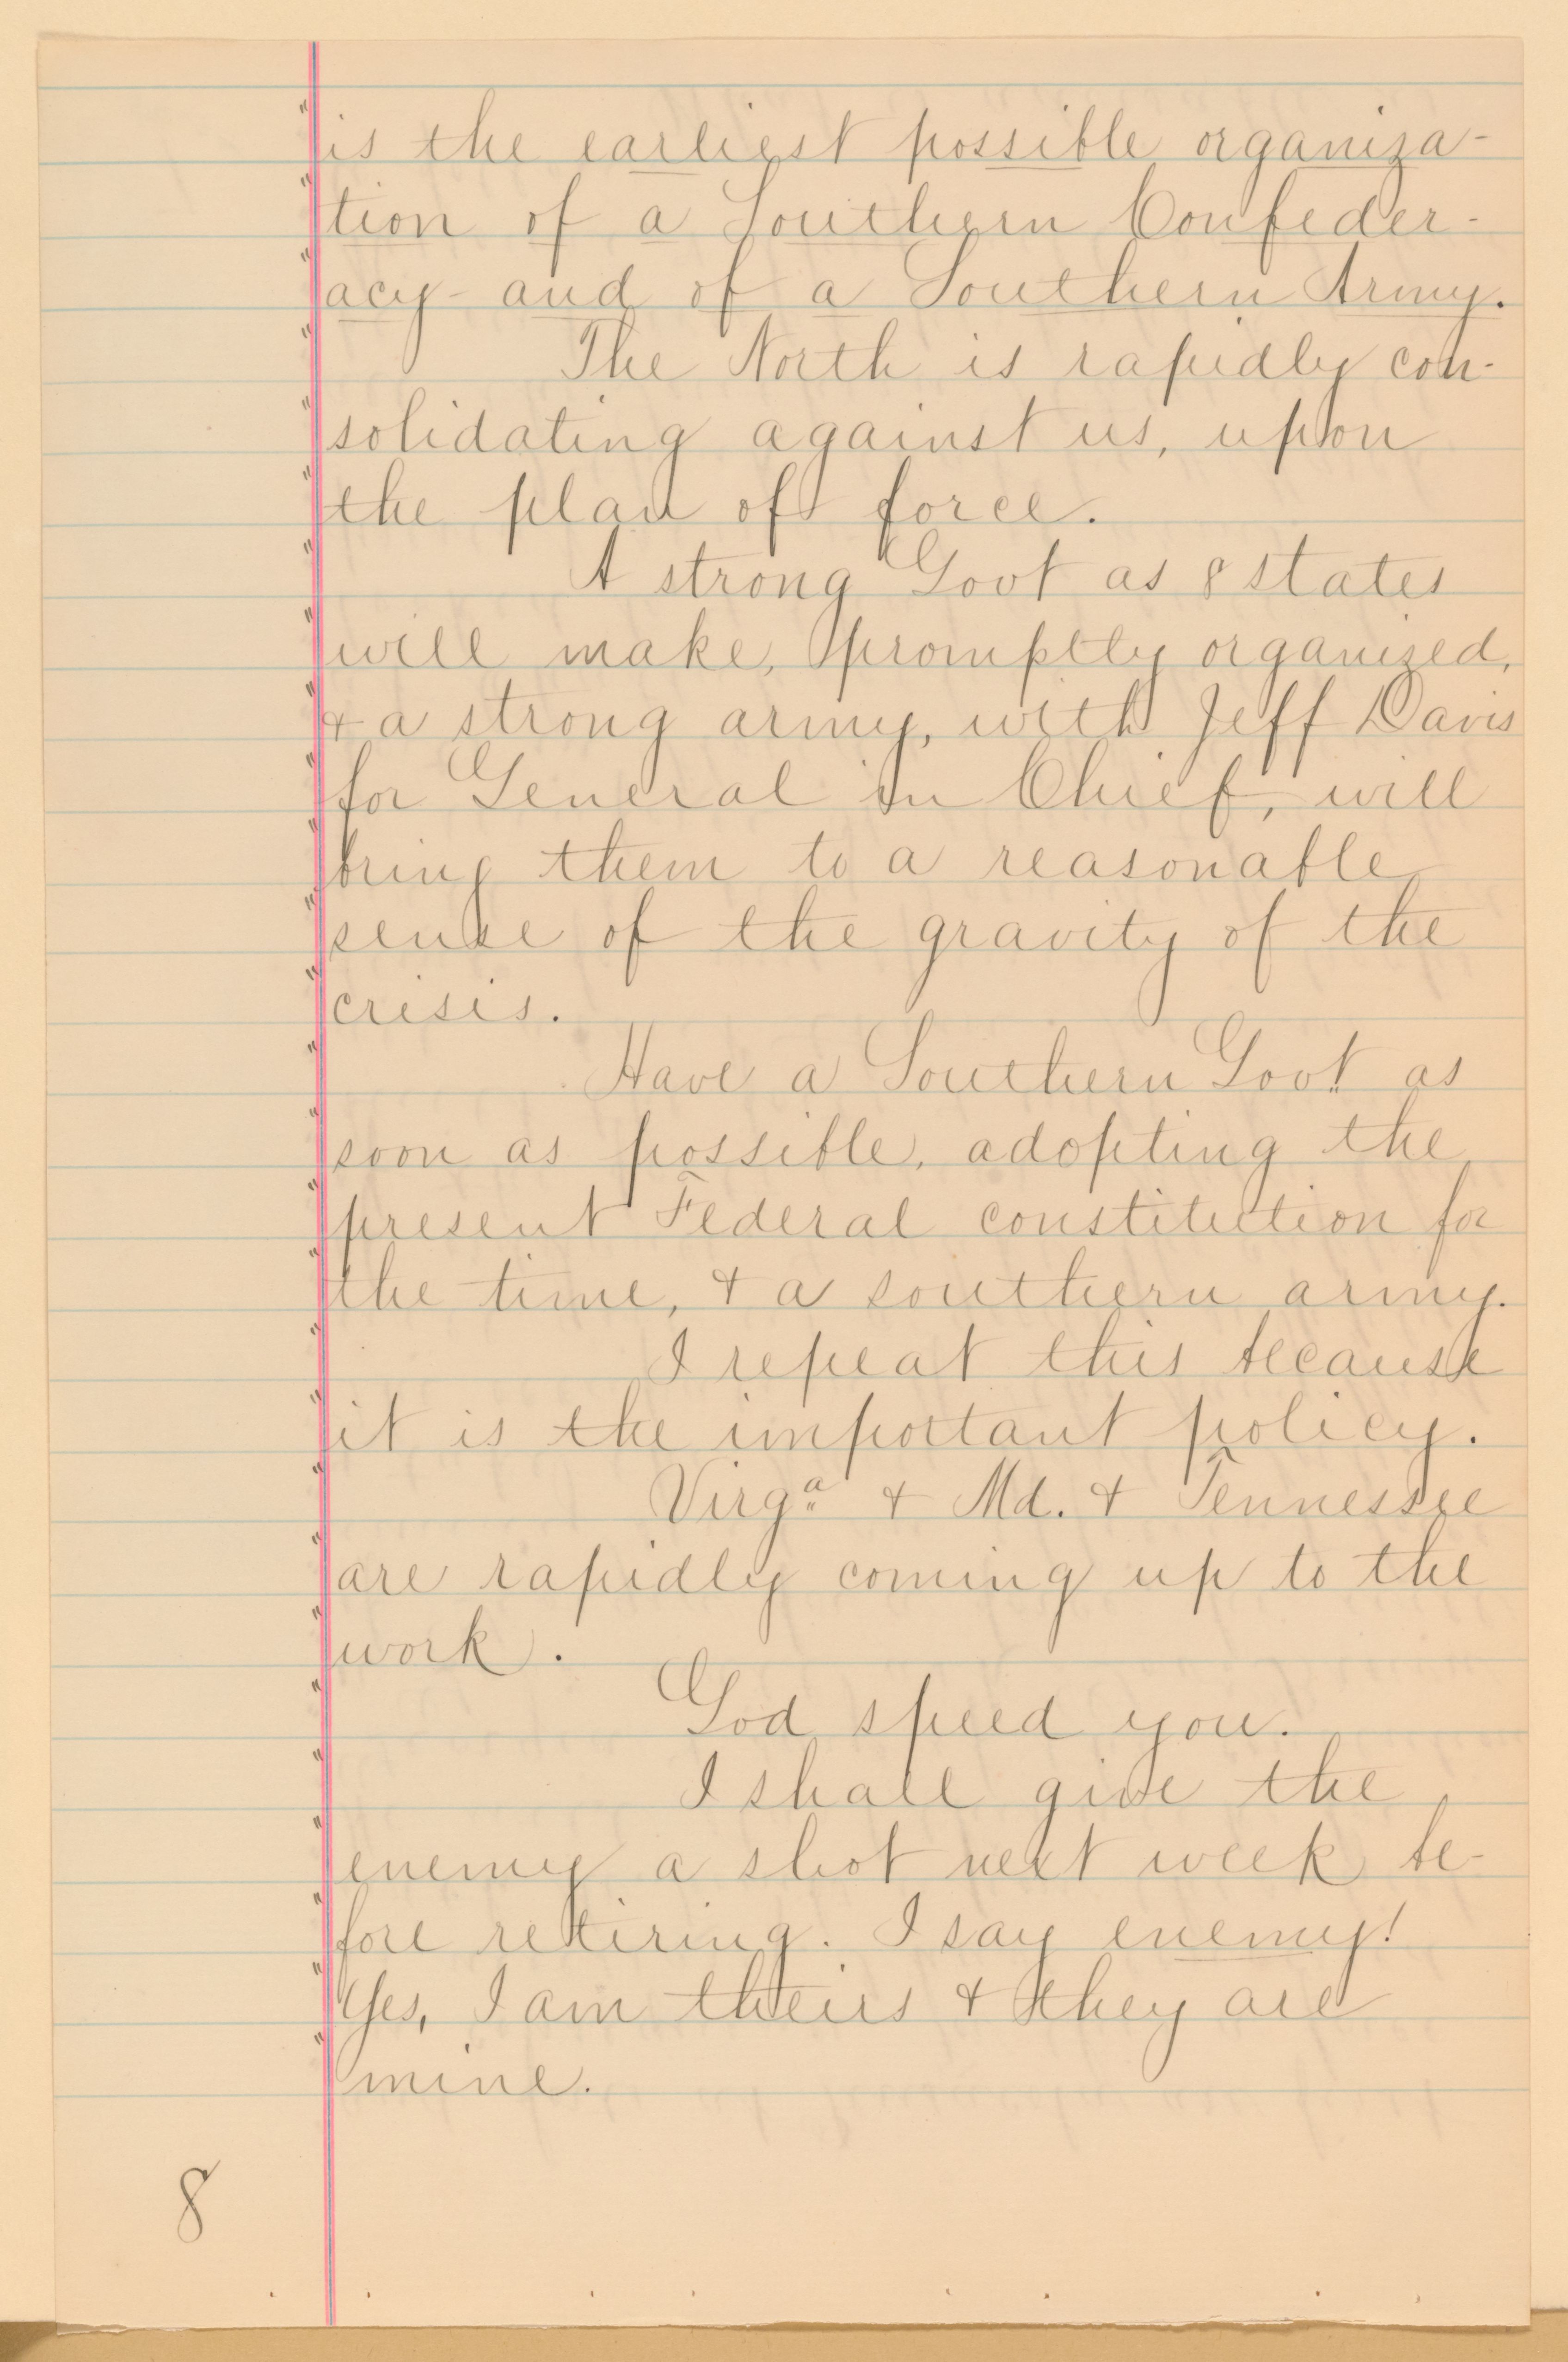 " is the earliest possible organiza-
" tion of a Southern Confeder-
" acy - and of a Southern Army.
" The North is rapidly con-
" solidating against us, upon
" the plan of force.
" A strong Govt as 8 states
" will make, promptly organized,
" & a strong army, with Jeff Davis
" for General in Chief, will
" bring them to a reasonable
" sense of the gravity of the
" crisis.
" Have a Southern Govt as
" soon as possible, adopting the
" present Federal constitution for
" the time, & a southern army.
" I repeat this because
" it is the important policy.
" Virgª & Md. & Tennessee
" are rapidly coming up to the
" work.
" God speed you.
" I shall give the
" enemy a shot next week be-
" fore retiring. I say enemy!
" Yes, I am theirs & they are
" mine.
8